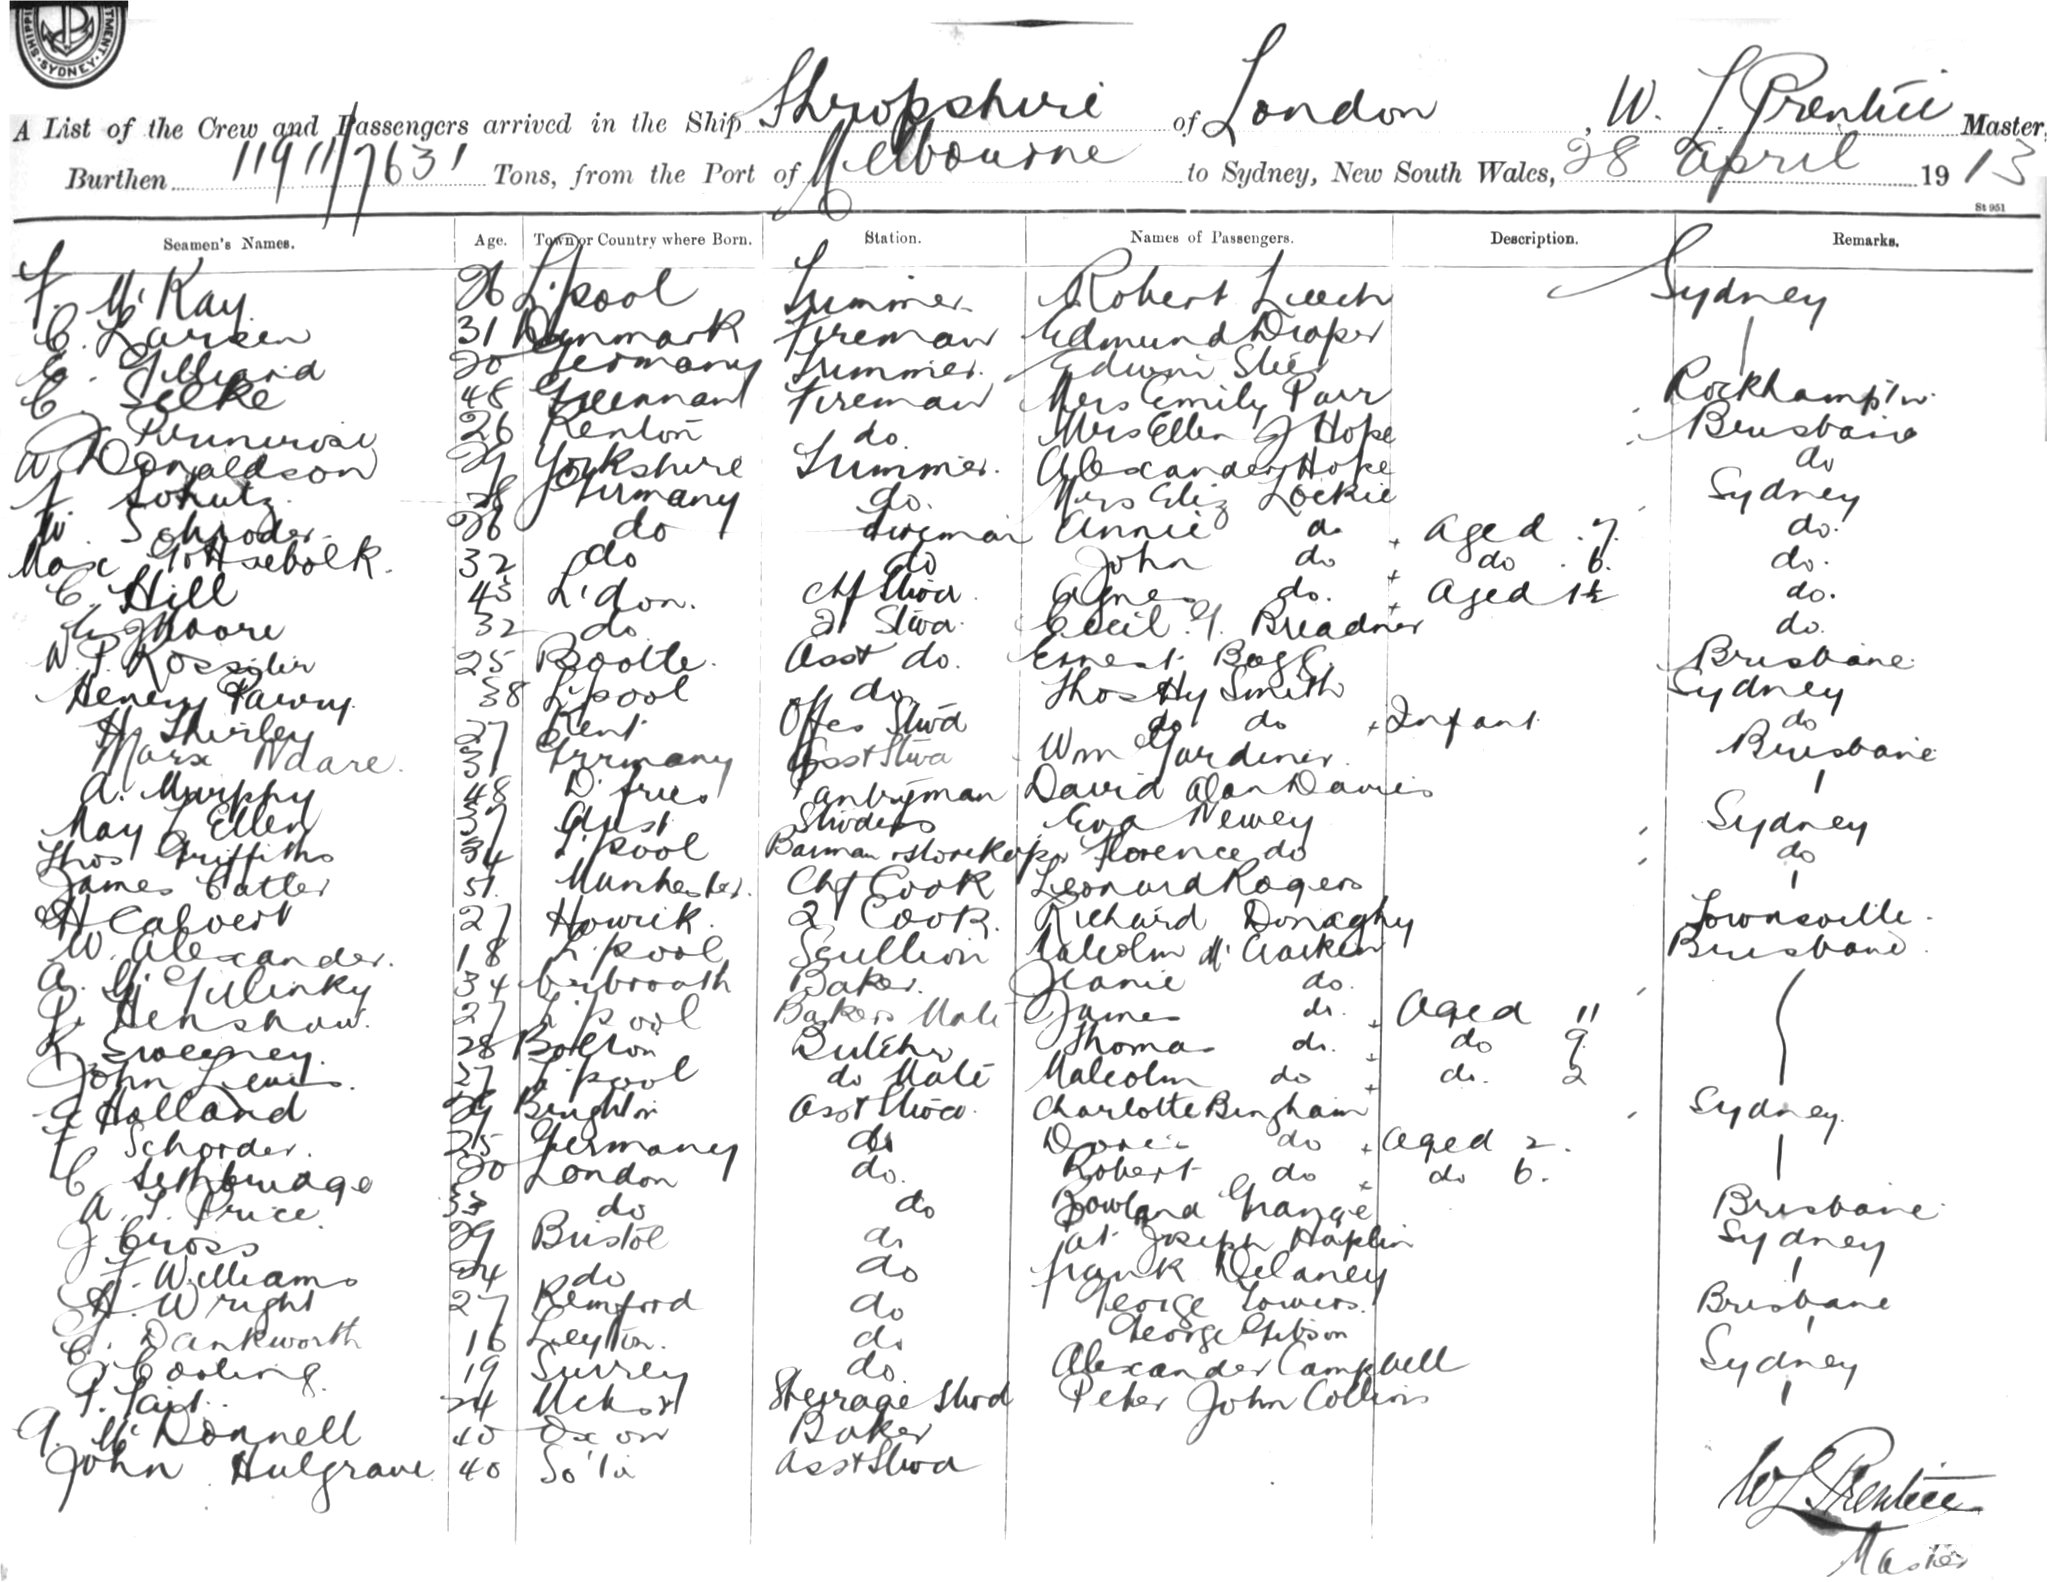 SHIPPI TMENT. SYDNEY.
A List of the Crew and Passengers arrived in the Ship Shropshire of London, W. L Prentice Master,
Burthen 11911/7631 Tons, from the Port of Melbourne to Sydney, New South Wales, 28 April 1913
St 951
Seamen's Names. Age. Town or Country where Born. Station. Names of Passengers. Description. Remarks.
F. McKay 26 L'pool Trimmer Robert Leech Sydney
C. Larsen 31 Denmark Fireman Edmund Draper
20 Germany Trimmer. Edwin
C. Selke 48 German Fireman Mrs Emily Parr Rockhampton
J Primrose 26 Renton do. Mrs Ellen J Hope Brisbane
W Donaldson 29 Yorkshire Trimmer. Alexander Hope do
F Schutz 28 Germany do. Mrs Eliz Lockie Sydney
W. Schroder 26 do Fireman Annie do Aged 7. do.
Max 32 do do John do do 6. do.
C. Hill 43 L'don. Chf Stwd Agnes do. Aged 1½ do.
Moore 32 do. 2 Stwd. Cecil G. Breadner do.
W. P. Rossiter 25 Bootle. Asst do. Ernest Brisbane
Henery Parry 38 L'pool do Thos Hy Smith Sydney
H Shirley 27 Kent Offes Stwd do do Infant do
Marx 37 Germany Asst Stwd Wm Gardiner Brisbane
A. Murphy 48 D'fries Pantryman David Alan Davies
May L Ellen 37 Stwdess Eva Newey Sydney
Thos Griffiths 34 L'pool Barman & Storekpr Florence do do
James Catler 51. Manchester. Chf Cook Leonard Rogers
H Calvert 27 Howick. 2 Cook. Richard Donaghy Townsville.
W. Alexander. 18 L'pool Scullion Malcolm McCracken Brisbane.
A. Mc 34 Arbroath Baker. Jeanie do.
Henshaw. 27 L'pool Bakers Mate James do. Aged 11
Sweeney. 28 Bolton Butcher Thomas do. do 9.
John Lewis. 27 L'pool do Mate Malcolm do do. 2
Holland 29 Brighton Asst Stwd Charlotte Bingham Sydney.
F Schorder. 25 Germany do Doris do Aged 2.
C Lethbridge 20 London do. Robert do do 6.
A. T. Price. 33 do do Rowland Grange Brisbane
J Cross 29 Bristol do Pat Joseph Sydney
F. Williams 24 do do Frank Delaney
H. Wright 27 do George Towers. Brisbane
C. Dankworth 16 Leyton. do George Gibson
Cooling. 19 Surrey do. Alexander Campbell Sydney
P. Tait. 24 Steerage Stwd Peter John Collins
A. McDonnell 40 Oxon Baker
John Hulgrave 40 So'ton Asst Stwd
W L Prentice
Master